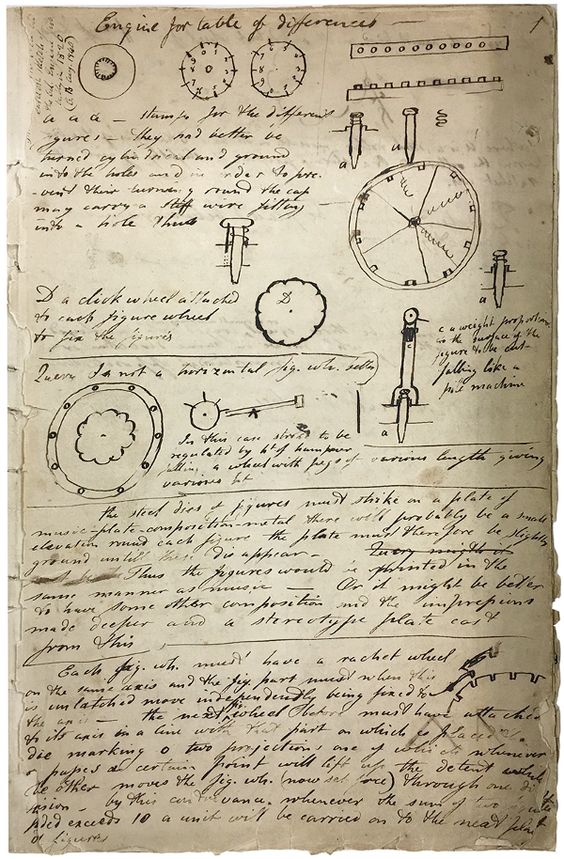 Engine for table of differences
1
a a a – stamps for the different
figures – they had better be
turned cylindrical and ground
into the holes and in order to pre-
-vent their turning round the cap
may carry a stiff wire fitting
into a hole thus
a
a
a
D a click wheel attached
to each figure wheel
to fix the figures
D
c a weight proportion
as the surface of the
figure to be cut
falling like a
pile machine
c
a
Query Is not a horizontal fig. wh. better
In this case stroke to be
regulated by ht of hammer
falling a wheel with pegs of various length giving
various ht
the steel dies of figures must strike on a plate of
music-plate-composition-metal there will probably be a small
elevation round each figure the plate must therefore be slightly
ground until these disappear –
Thus the figures would be printed in the
same manner as music – Or it might be better
to have some other composition and the impressions
made deeper and a stereotype plate cast
from this
Each fig. wh. must have a rachet wheel
on the same axis and the fig. part must when this
is unlatched move independently being fixed to
the axis – the next wheel before must have attached
to its axis in a line with that part on which is placed the
die marking 0 two projections one of which whenever
it passes a certain point will lift up the detent while
the other moves the fig. wh. (now set free) through one di
vision – by this contrivance whenever the sum of two figures
added exceeds 10 a unit will be carried on to the next place
of figures